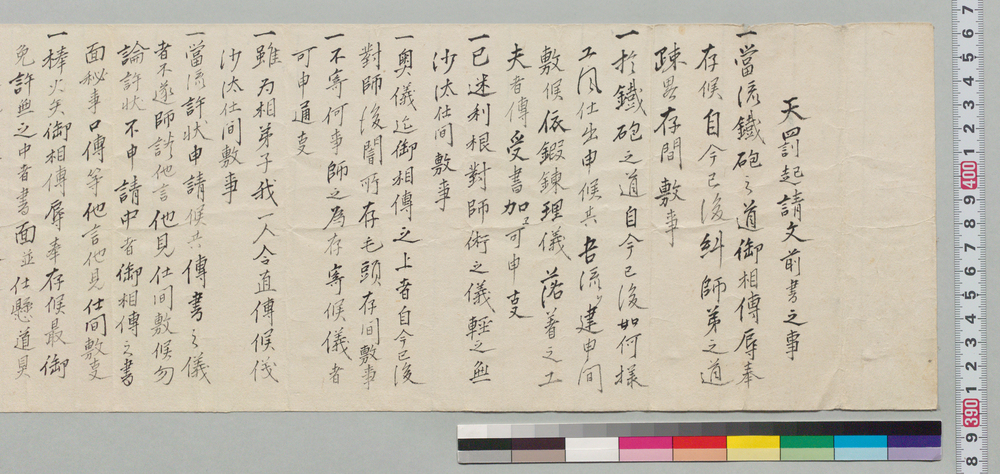 天罰起請文前書之事
一當流鐵砲之道御相傳辱奉
存候自今已後糾師弟之道
踈畧存間敷事
一於鐵砲之道自今已後如何様
工風仕出申候共吾流ゟ建申間
敷候依鍛錬理儀落著之工
夫者傳受書加え可申支
一已迷利根對師術之儀輕之無
沙汰仕間敷事
一奥儀迄御相傳之上者自今已後
對師後闇所存毛頭存間敷事
一不寄何事師之為存寄候儀者
可申通支
一雖為相弟子我一人合直傳候儀
沙汰仕間敷事
一當流許状申請候共傳書之儀
者不遂師談他言他見仕間敷候勿
論許状不申請中者御相傳之書
面秘事口傳等他言他見仕間敷支
一棒火矢御相傳辱奉存候最御
免許無之中者書面並仕懸道具